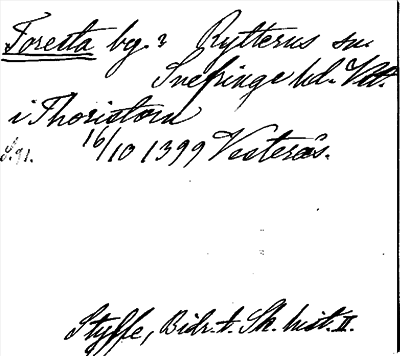 Toresta bg. i Rytterns sn.
Snefringe hd. Vstt.
i Thoristom
S. 91. 16/10 1399 Vesterås.
Styffe, Bidr. t. Sk. hist. II.